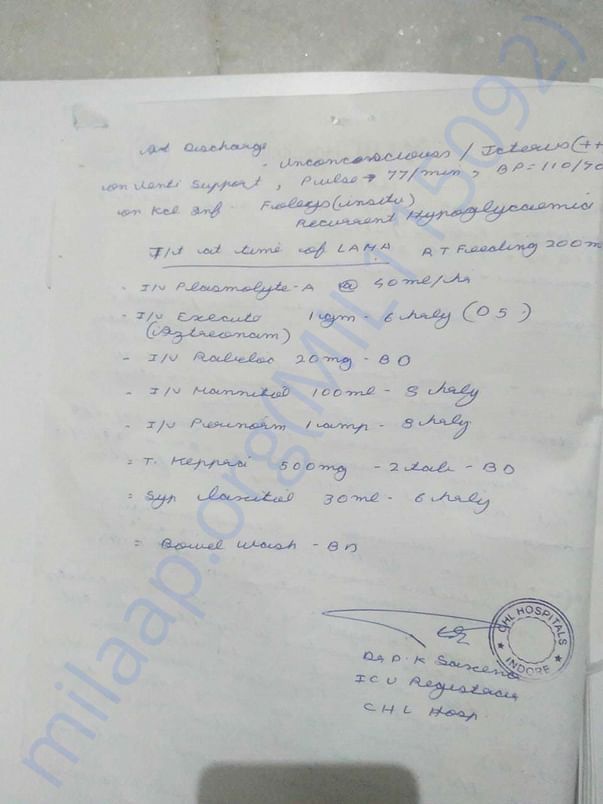 At Discharge
- Unconconscious / Icterus (++
on Venti Support, Pulse → 77/min, BP = 110/70
on Kcl Inf - Foleys (insitu)
Recurrent Hypoglycaemia
T/t at time of LAMA R T Feeding 200m
- I/V Plasmolyte-A @ 40ml/hr
- I/V Execute 1 gm - 6 hrly (05)
(Aztreonam)
- I/V Rabeloc 20mg - BD
- I/V Mannitol 100ml - 8 hrly
- I/V Perinorm 1 amp - 8 hrly
= T. Keppra 500mg - 2 tab - BD
= Syp 30ml - 6 hrly
= Bowel Wash - BD
CHL HOSPITALS
INDORE
Dr P. K Saxena
ICU Registrar
CHL Hosp.
milaap.org(MIL115092)